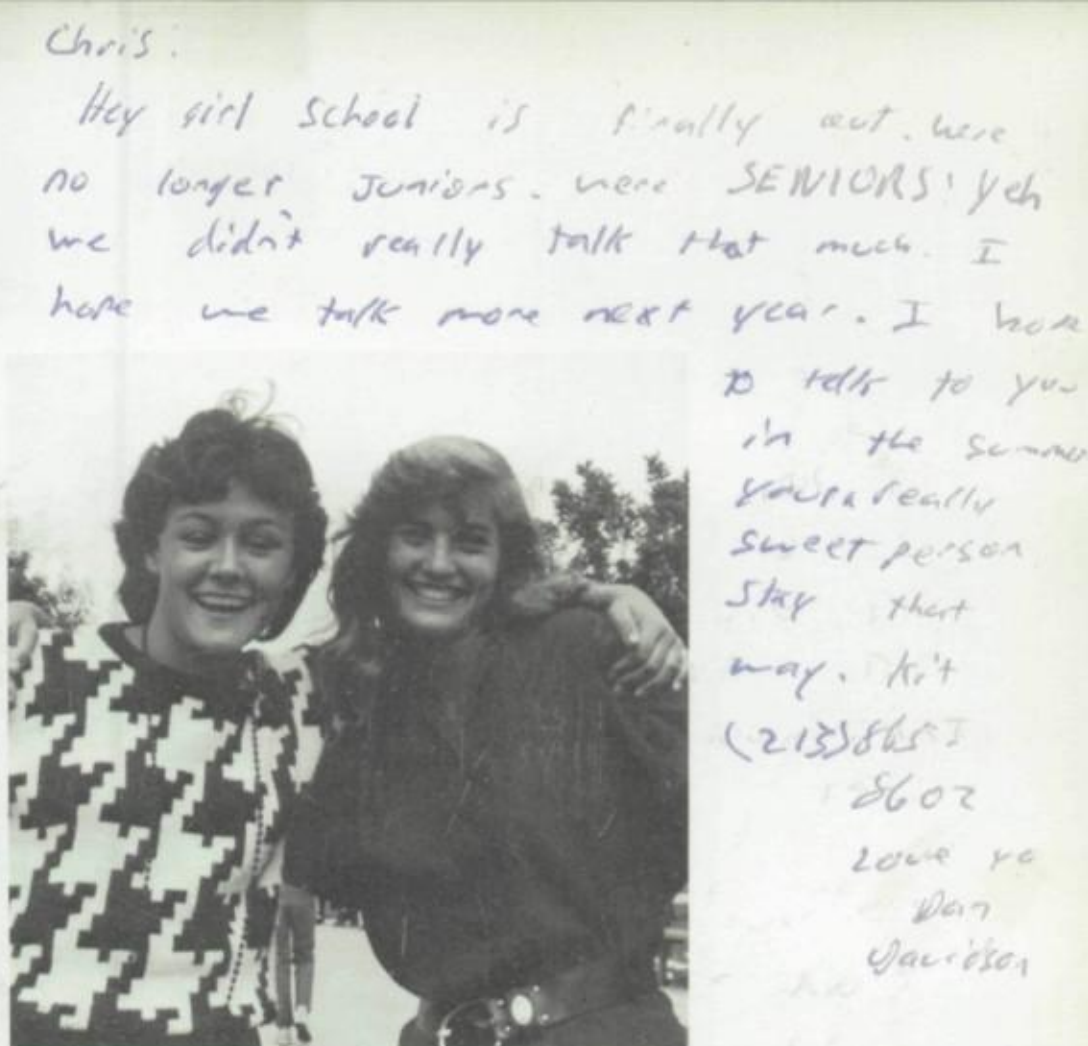 Chris.
Hey girl school is finally out. were
no longer Juniors. were SENIORS! Yeh
we didn't really talk that much. I
hope we talk more next year. I hope
to talk to you
in the summer
your a really
sweet person
stay that
way. Kit
(213) 865-
8602
Love ya
Dan
Davidson